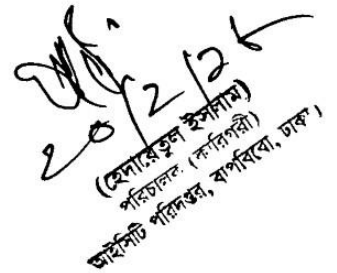 ২০/২/২৮
(হেদায়েতুল ইসলাম)
পরিচালক (কারিগরী)
আইসিটি পরিদপ্তর, বাপবিবো, ঢাকা।